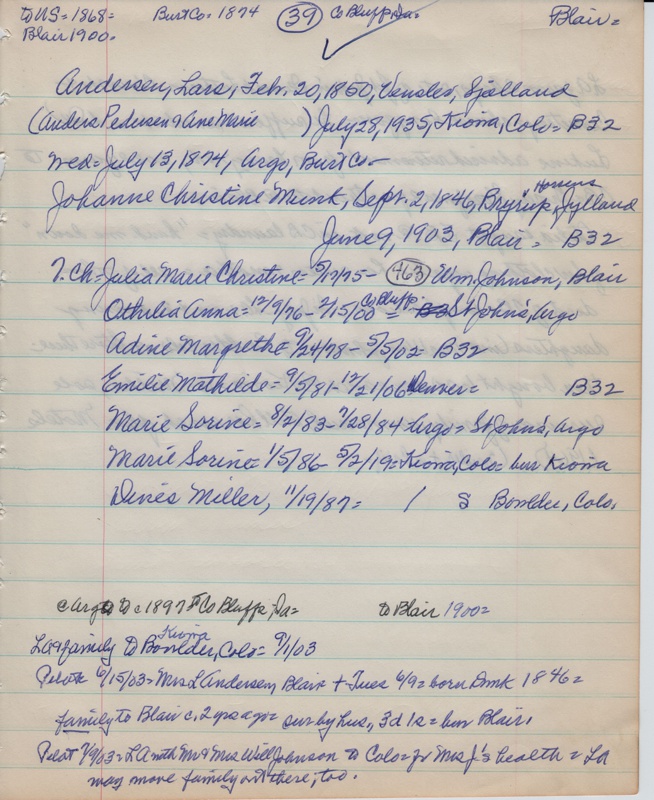 to US = 1868= Burt Co = 1874 39 Co Bluffs, Ia= Blair=
Blair 1900=
Andersen, Lars, Feb. 20, 1850, Venslev, Sjælland
(Anders Pedersen & Ane Marie ) July 28, 1935, Kiowa, Colo= B32
wed= July 13, 1874, Argo, Burt Co=
Horsens
Johanne Christine Munk, Sept. 2, 1846, Bryrup, Jylland
June 9, 1903, Blair= B32
7. Ch= Julia Marie Christine= 5/17/75- 463 Wm. Johnson, Blair
Othilia Anna= 12/9/76- 2/15/00 Co Bluffs = B3 St John's, Argo
Adine Margrethe 9/24/78- 5/5/02- B32
Emilie Mathilde= 9/5/81- 12/21/06 Denver= B32
Marie Sorine= 8/2/83- 7/28/84= Argo= St John's, Argo
Marie Sorine 1/5/86- 5/2/19= Kiowa, Colo= bur Kiowa
Miller, 11/19/87= / S Boulder, Colo.
c Argo to c 1897 to Co Bluffs, Ia= to Blair 1900=
Kiowa
LA & family to Boulder, Colo= 9/1/03
Pilot 6/15/03= Mrs L Andersen, Blair + Tues 6/9= born Dmk 1846=
family to Blair c. 2 yrs ago= sur by hus, 3 d 1 s= bur Blair.
Pilot 7/9/03= LA with Mr & Mrs Will Johnson to Colo= for Mrs J's health= LA
may move family out there, too.